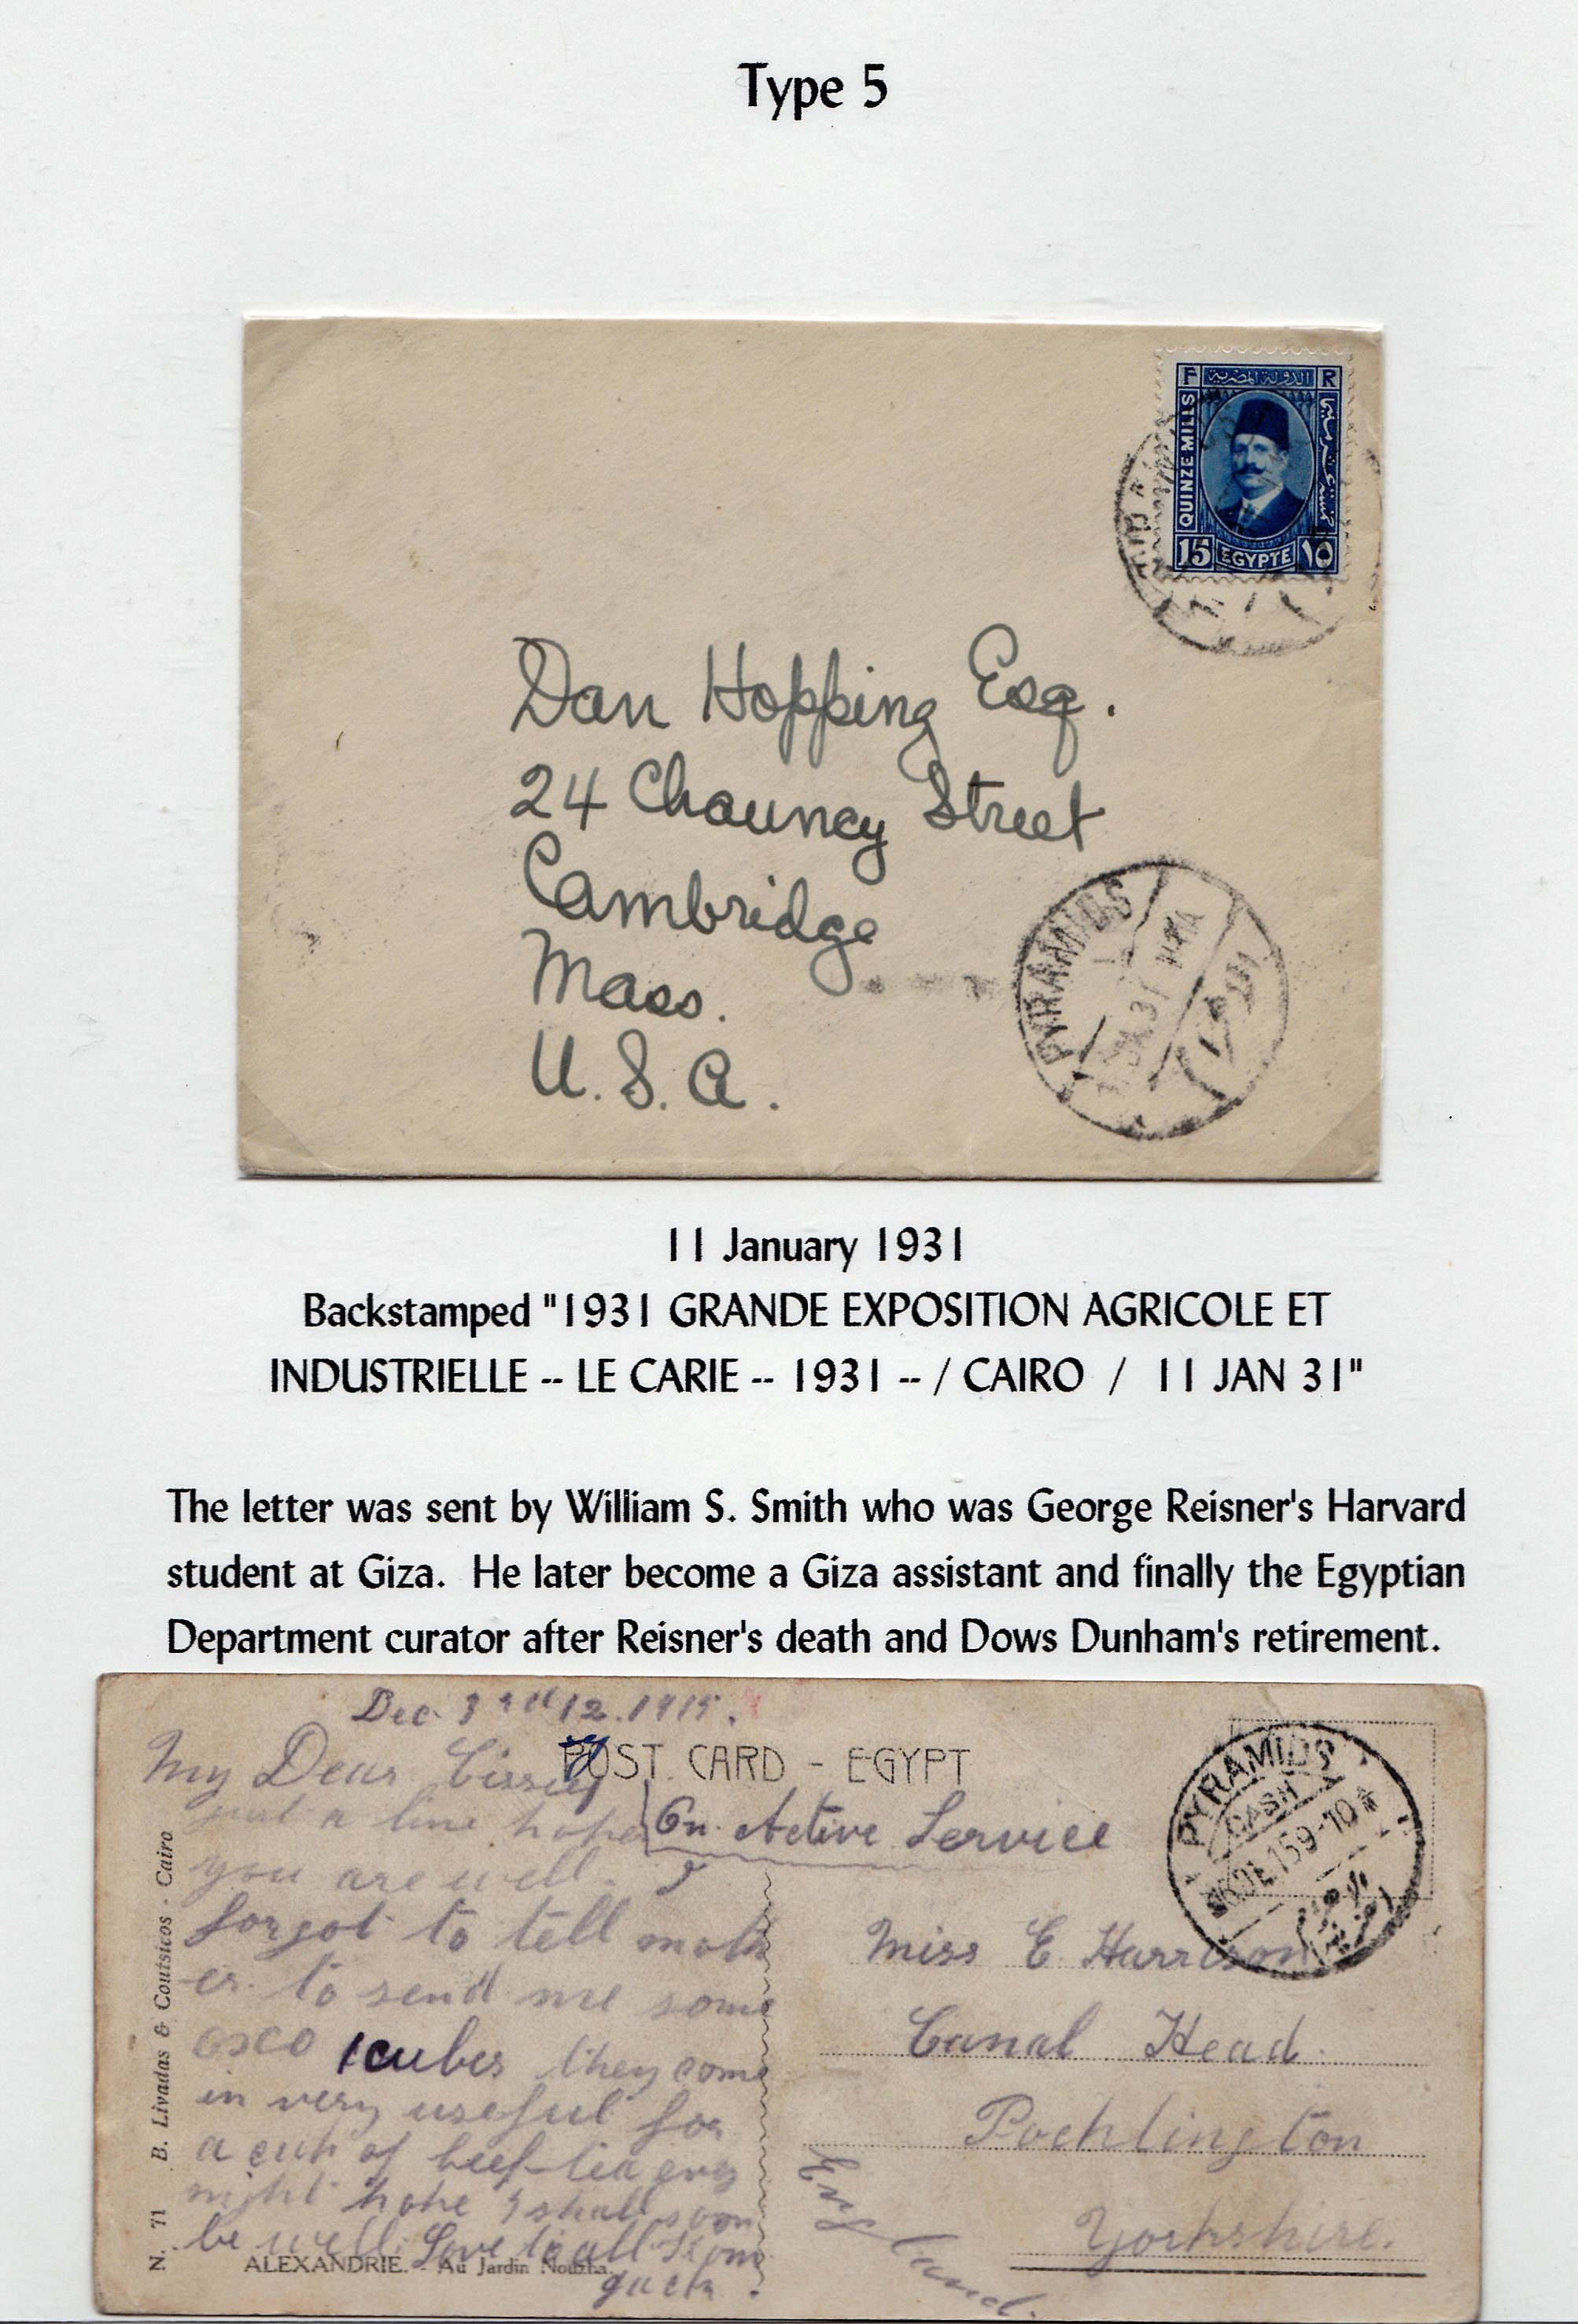 Type 5
F الدولة المصرية R
QUINZE MILLS
15 EGYPTE ١٥
Dan Hopping Esq.
24 Chauncy Street
Cambridge
Mass.
U.S.A.
PYRAMIDS
11 January 1931
Backstamped "1931 GRANDE EXPOSITION AGRICOLE ET
INDUSTRIELLE -- LE CARIE -- 1931 -- / CAIRO / 11 JAN 31"
The letter was sent by William S. Smith who was George Reisner's Harvard
student at Giza. He later become a Giza assistant and finally the Egyptian
Department curator after Reisner's death and Dows Dunham's retirement.
Dec. 3rd 12.1915.
POST CARD - EGYPT
My Dear Cissey
just a line hope
you are well. I
forgot to tell moth
er. to send me some
oxo cubes they come
in very useful for
a cup of beef-tea every
night hope I shall soon
be well. Love to all from
Jack.
On Active Service
PYRAMIDS
CASH
Miss E. Harrison
Canal Head.
Pocklington
Yorkshire.
England.
N. 71 B. Livadas & Coutsicos - Cairo
ALEXANDRIE. - Au Jardin Nouzha.